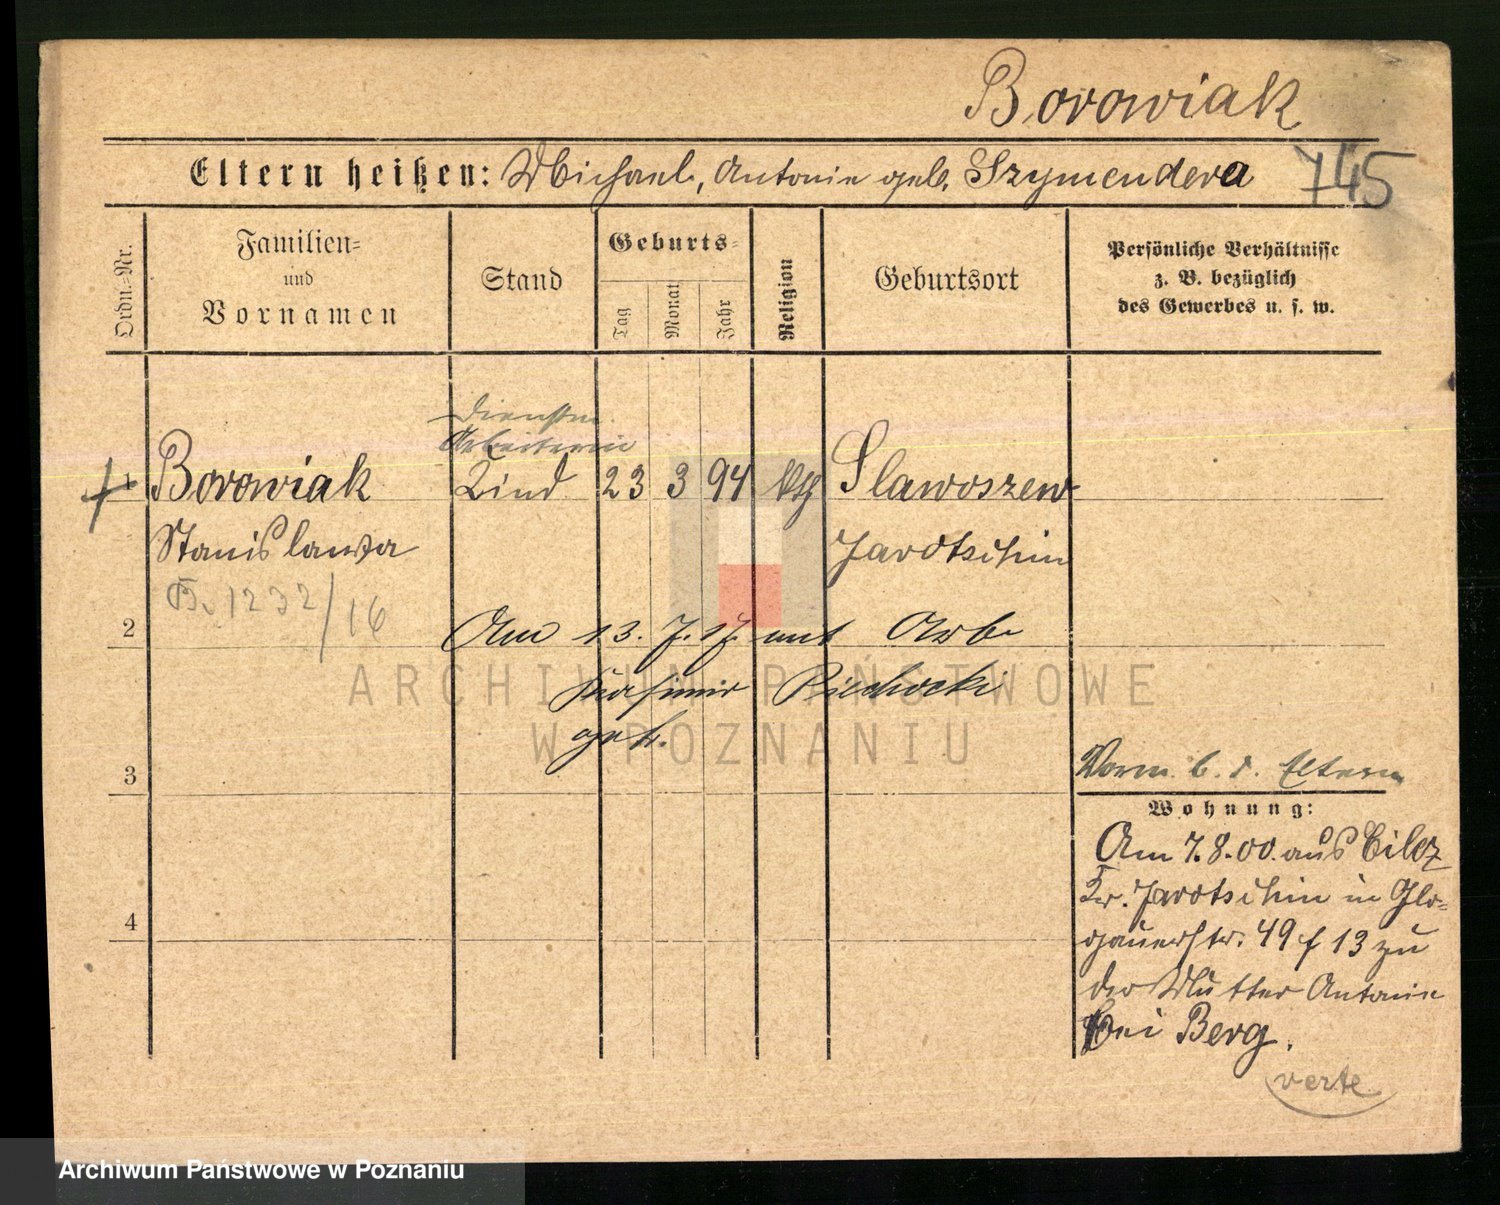 Borowiak
Eltern heißen: Michael, Antonie geb. Szymendera
745
Ordn.=Nr.
Familien=
und
Vornamen
Stand
Geburts=
Tag
Monat
Jahr
Religion
Geburtsort
Persönliche Verhältnisse
z. B. bezüglich
des Gewerbes u. s. w.
Dienstm.
Arbeiterin
1 Borowiak Kind 23 3 94 kth Slawoszew
Stanislawa Jarotschin
B. 1232/16
2 Am 13. 7. 17. mit Arb.
Kasimir Piechocki
getr.
3
Vorm. b. d. Eltern
Wohnung:
Am 7.8.00. aus Cilcz
Kr. Jarotschin in Glo=
gauerstr. 49 f 13 zu
der Mutter Antonie
bei Berg.
4
verte
ARCHIWUM PAŃSTWOWE
W POZNANIU
Archiwum Państwowe w Poznaniu